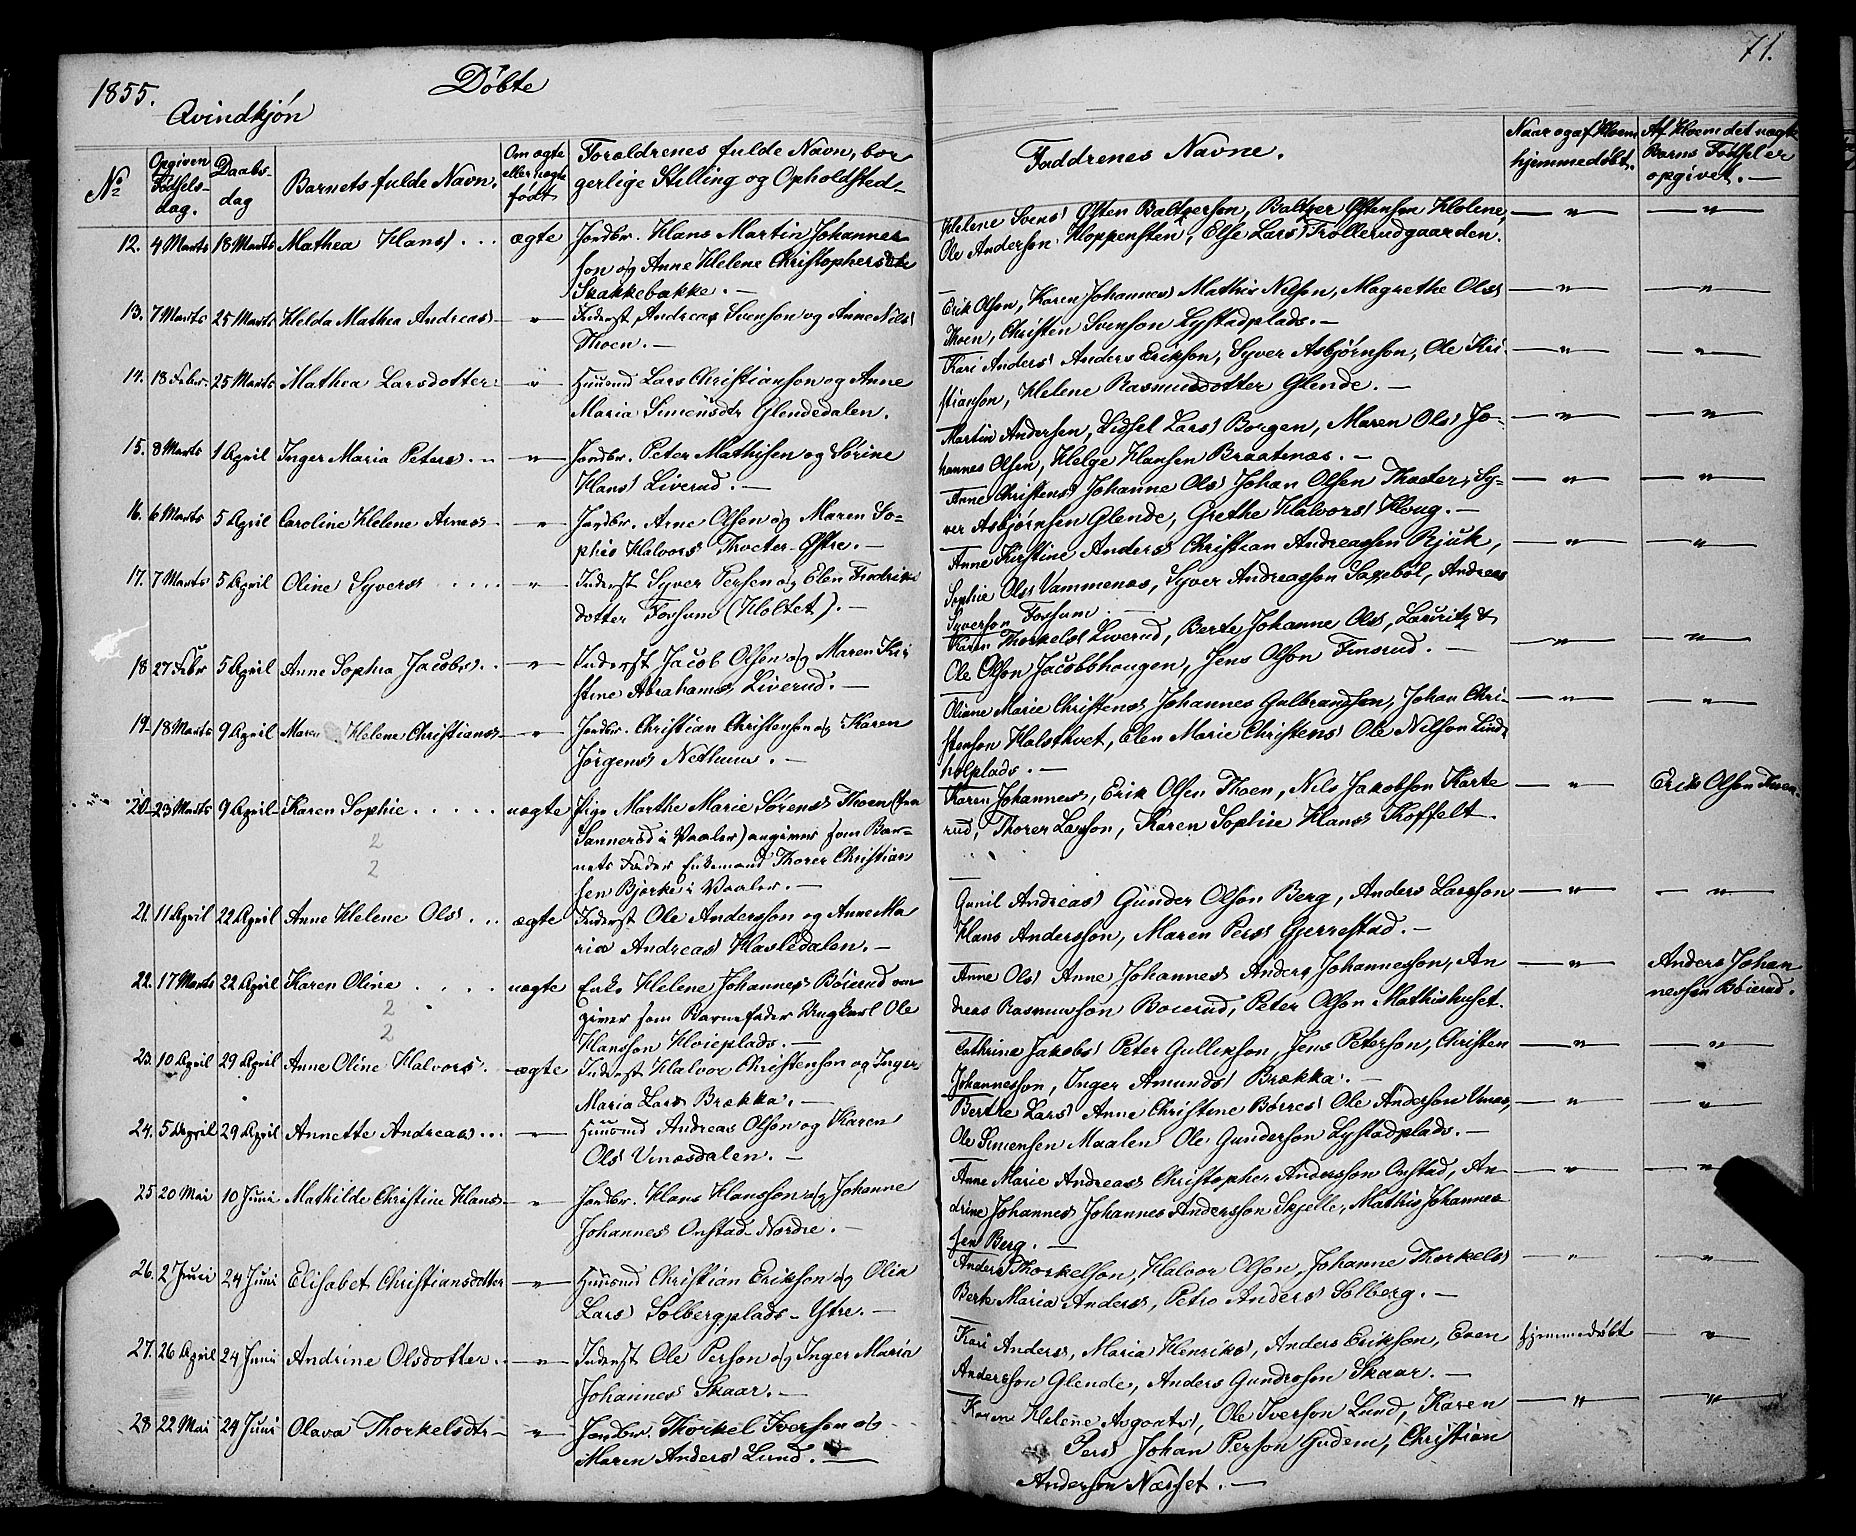 71.
1855. Döbte
Qvindkjön
No
Opgiven Födselsdag.
Daabsdag
Barnets fulde Navn.
Om ægte eller uægte födt
Forældrenes fulde Navn, borgerlige Stilling og Opholdsted
Faddrenes Navne.
Naar og af Hvem hjemmedöbt.
Af Hvem det uægte Barns Födsel er opgivet.
12. 4 Marts 18 Marts Mathea Hans ægte Jordbr. Hans Martin Johannes
son og Anne Helene Christophersdtr
Skakkebække.
Helene Svens Østen Baltzerson, Baltzer Østenson Holene,
Ole Anderson Kloppensten, Else Lars Trollerudgaarden.
13. 7 Marts 25 Marts Helda Mathea Andreas Inderst Andreas Svenson og Anne Nils
Thoen.
Erik Olson, Karen Johannes Mathis Nilson, Magrethe Ols
Thoen, Christen Svenson Lystadplads.
14. 18 Febr. 25 Marts Mathea Larsdotter Huusmd Lars Christianson og Anne
Maria Simensdtr Glendedalen.
Kari Anders Anders Erikson, Syver Asbjørnson, Ole Kri-
stianson, Helene Rasmusdotter Glende.
15. 8 Marts 1 April Inger Maria Peters Jordbr. Peter Mathisen og Sörine
Hans Liverud.
Martin Andersen, Sidsel Lars Borgen, Maren Ols Jo-
hannes Olsen, Helge Hansen Braatenæs.
16. 6 Marts 5 April Caroline Helene Arnes Jordbr. Arne Olsen og Maren So-
phie Halvors Thveter Østre.
Anne Christens Johanne Ols Johan Olsen Thveter, Sy-
ver Asbjørnsen Glende, Grethe Halvors Houg.
17. 7 Marts 5 April Oline Syvers Inderst Syver Persen og Elen Fredriks
dotter Fossum (Holtet).
Anne Kirstine Anders Christian Andreassen Bjuk,
Sophie Ols Vammenæs, Syver Andreasson Sageböl, Andreas
Syverson Fossum.
18 27 Febr 5 April Anne Sophia Jacobs Inderst Jacob Olson og Maren Kri
stine Abrahams Liverud.
Karen Thorkels Liverud, Berte Johanne Ols, Lauritz &
Ole Olson Jacobbhaugen, Jens Olson Finsrud.
19. 18 Marts 9 April Maren Helene Christians Jordbr. Christian Christenson og Karen
Jörgens Nethuus.
Oliane Marie Christens Johannes Gulbransson, Johan Chri-
stenson Halsthvet, Elen Marie Christens Ole Nilson Lind
holplads.
20. 23 Marts 9 April Karen Sophie uægte Pige Marthe Marie Sörens Thoen (fra
Sannerød i Vaaler) angiver som Bar-
nets Fader Enkemand Thorer Christian
sen Bjerke i Vaaler.
2
2
Karen Johannes, Erik Olsen Thoen, Nils Jakobson Karte
rud, Thorer Larsson, Karen Sophie Hans Koffelt.
Erik Olson Thoen.
21. 11 April 22 April Anne Helene Ols ægte Inderst Ole Andersson og Anne Ma
ria Andreas Hasledalen.
Gunil Andreas Gunder Olson Berg, Anders Larsson
Hans Andersson, Maren Pers Gjerrestad.
22. 17 Marts 22 April Karen Oline uægte Enke Helene Johannes Böierud an
giver som Barnefader Ungkarl Ole
Hansson Hoieplads.
2
2
Anne Ols Anne Johannes Anders Johannesson, An
dreas Rasmusson Boierud, Peter Olson Mathishuset.
Anders Johan
nessen Böierud.
23. 10 April 29 April Anne Oline Halvors ægte Inderst Halvor Christenson og Inger
Maria Lars Brækka.
Cathrine Jakobs Peter Gullikson, Jens Peterson, Christen
Johannesson, Inger Amunds Brækka.
24. 5 April 29 April Annette Andreas Huusmd Andreas Olson og Karen
Ols Vinæsdalen.
Berthe Lars Anne Christine Börres Ole Anderson Vinæs,
Ole Simensen Maalen Ole Gunderson Lystadplads.
25 20 Mai 10 Juni Mathilde Christine Hans Jordbr. Hans Hansson og Johanne
Johannes Onstad Nordre.
Anne Marie Andreas Christopher Andersson Onstad, An
drine Johannes Johannes Andersson Skjelle, Mathis Johannes
sen Berg.
26. 2 Juni 24 Juni Elisabet Christiansdotter Huusmd Christian Erikson og Olia
Lars Solbergplads Ytre.
Anders Thorkelson, Halvor Olson, Johanne Thorkels
Berte Maria Anders, Petro Anders Solberg.
27. 26 April 24 Juni Andrine Olsdotter Inderst Ole Person og Inger Maria
Johannes Skaar.
Kari Anders, Maria Henriks, Anders Erikson, Even
Andersson Glende, Anders Gundroson Skaar.
Hjemmedöbt
28 22 Mai 24 Juni Olava Thorkelsdtr Jordbr. Thorkel Iverson og
Maren Anders Lund.
Karen Helene Avgonts, Ole Iverson Lund, Karen
Pers Johan Person Gudem, Christian
Anderson Næsset.